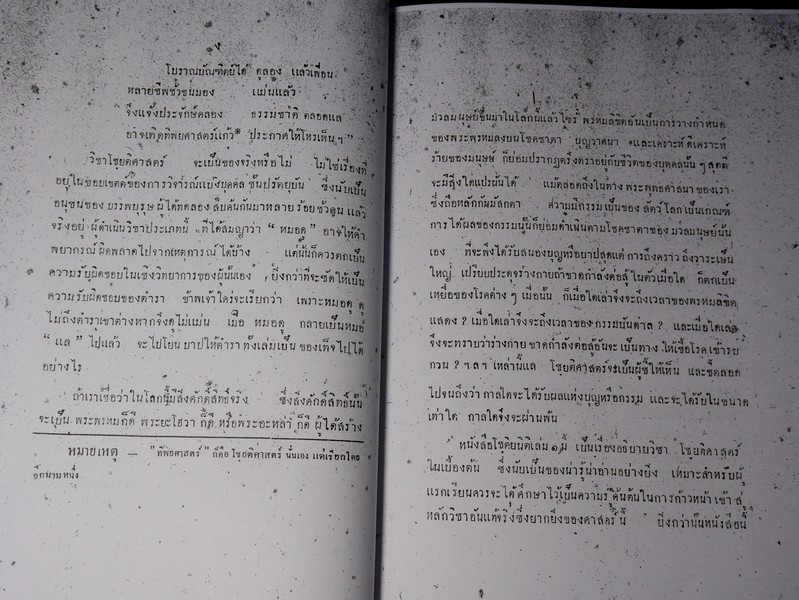 ง
โบราณบัณฑิตย์ไได้ คุลอง แล้วเพื่อน
หลายชีพชั่วชนมอง แม่นแล้ว
จึงแจ้งประจักษ์คลอง ธรรมชาติ ตลอดแล
อาจเทิดทิพยศาสตร์แก้ว* ประกาศให้โหรเห็น ๆ ”
วิชาโชยติศาสตร์ จะเป็นของจริงหรือไม่ ไม่ใช่เรื่องที่
อยู่ในขอบเขตต์ของการวิจารณ์แบ่งบุคคล ชั้นปรัตยุบัน ซึ่งนับเป็น
อนุชนของ บรรพบุรุษ ผู้ได้ทดลอง สืบค้นกันมาหลาย ร้อยชั่วคน แล้ว
จริงอยู่ ผู้ดำเนินวิชาประเภทนี้ ที่ได้สมญาว่า “ หมอดู ” อาจให้คำ
พยากรณ์ ผิดพลาดไปจากเหตุการณ์ได้บ้าง แต่นั่นก็ควรตกเป็น
ความรับผิดชอบในเชิงวิทยาการของผู้นั้นเอง ยิ่งกว่าที่จะซัดให้เป็น
ความรับผิดชอบของตำรา ข้าพเจ้าใคร่จะเรียกว่า เพราะหมอดู ดู
ไม่ถึงตำราเขาต่างหากจึงดูไม่แม่น เมื่อ หมอดู กลายเป็นหมอ
“ แล ” ไปแล้ว จะไปโยน บาปให้ตำรา ทั้งเล่มเป็น ของเท็จไปได้
อย่างไร
ถ้าเราเชื่อว่าในโลกนี้มีสิ่งศักดิ์สิทธิ์จริง ซึ่งสิ่งศักดิ์สิทธิ์นั้น
จะเป็น พระพรหมก็ดี พระยะโฮวา ก็ดี หรือพระอะหล่า ก็ดี ผู้ได้สร้าง
หมายเหตุ — “ทิพยศาสตร์” ก็คือ โชยติศาสตร์ นั่นเอง แต่เรียกโดย
อีกนามหนึ่ง
มวลมนุษย์ขึ้นมาในโลกนี้แล้ว ไซร้ พรหมลิขิตอันเป็นการวางกำหนด
ของพระพรหมลงบนโชคชาตา บุญวาศนา และเคราะห์ดีเคราะห์
ร้ายของมนุษย์ ก็ย่อมปรากฏตรึงตราอยู่กับชีวิตของบุคคลนั้น ๆ สุดที่
จะมีสิ่งใดแปรผันได้ แม้ตลอดถึงในทาง พระพุทธศาสนา ของเรา
ซึ่งถือหลักกัมมัสกตา ความมีกรรมเป็นของ สัตว์โลกเป็นเกณฑ์
การได้ผลของกรรมนั้นก็ย่อมดำเนินตามโชคชาตาของ มวลมนุษย์นั้น
เอง ที่จะพึงได้รับสนองบุญหรือบาปสุดแต่ การถึงคราวถึงวาระเป็น
ใหญ่ เปรียบประดุจร่างกายถ้าขาดกำลังต่อสู้ ในตัวเมื่อใด ก็ตกเป็น
เหยื่อของโรคต่าง ๆ เมื่อนั้น ก็เมื่อใดเล่าจึงจะถึงเวลาของพรหมลิขิต
แสดง ? เมื่อใดเล่าจึงจะถึงเวลาของกรรมบันดาล ? และเมื่อใดเล่า
จึงจะทราบว่าร่างกาย ขาดกำลังต่อสู้อันจะ เป็นทาง ให้เชื้อโรคเข้ารบ
กวน ? ฯลฯ เหล่านี้แล โชยติศาสตร์จะเป็นผู้ชี้ให้เห็น และชี้ตลอด
ไปจนถึงว่า กาลใดจะได้รับผลแห่งบุญหรือกรรม และจะได้รับในขนาด
เท่าใด กาลใดจึงจะผ่านพ้น
หนังสือโชติยนิติเล่ม ๑ นี้ เป็นเรื่องอธิบายวิชา โชยติศาสตร์
ในเบื้องต้น ซึ่งนับเป็นของน่ารู้น่าอ่านอย่างยิ่ง เหมาะสำหรับผู้
แรกเรียนควรจะได้ศึกษาไว้เป็นความรู้ค้นต้นในการก้าวหน้า เข้าสู่
หลักวิชาอันแท้จริงซึ่งยากยิ่งของศาสตร์นี้ ยิ่งกว่านั้นหนังสือนี้